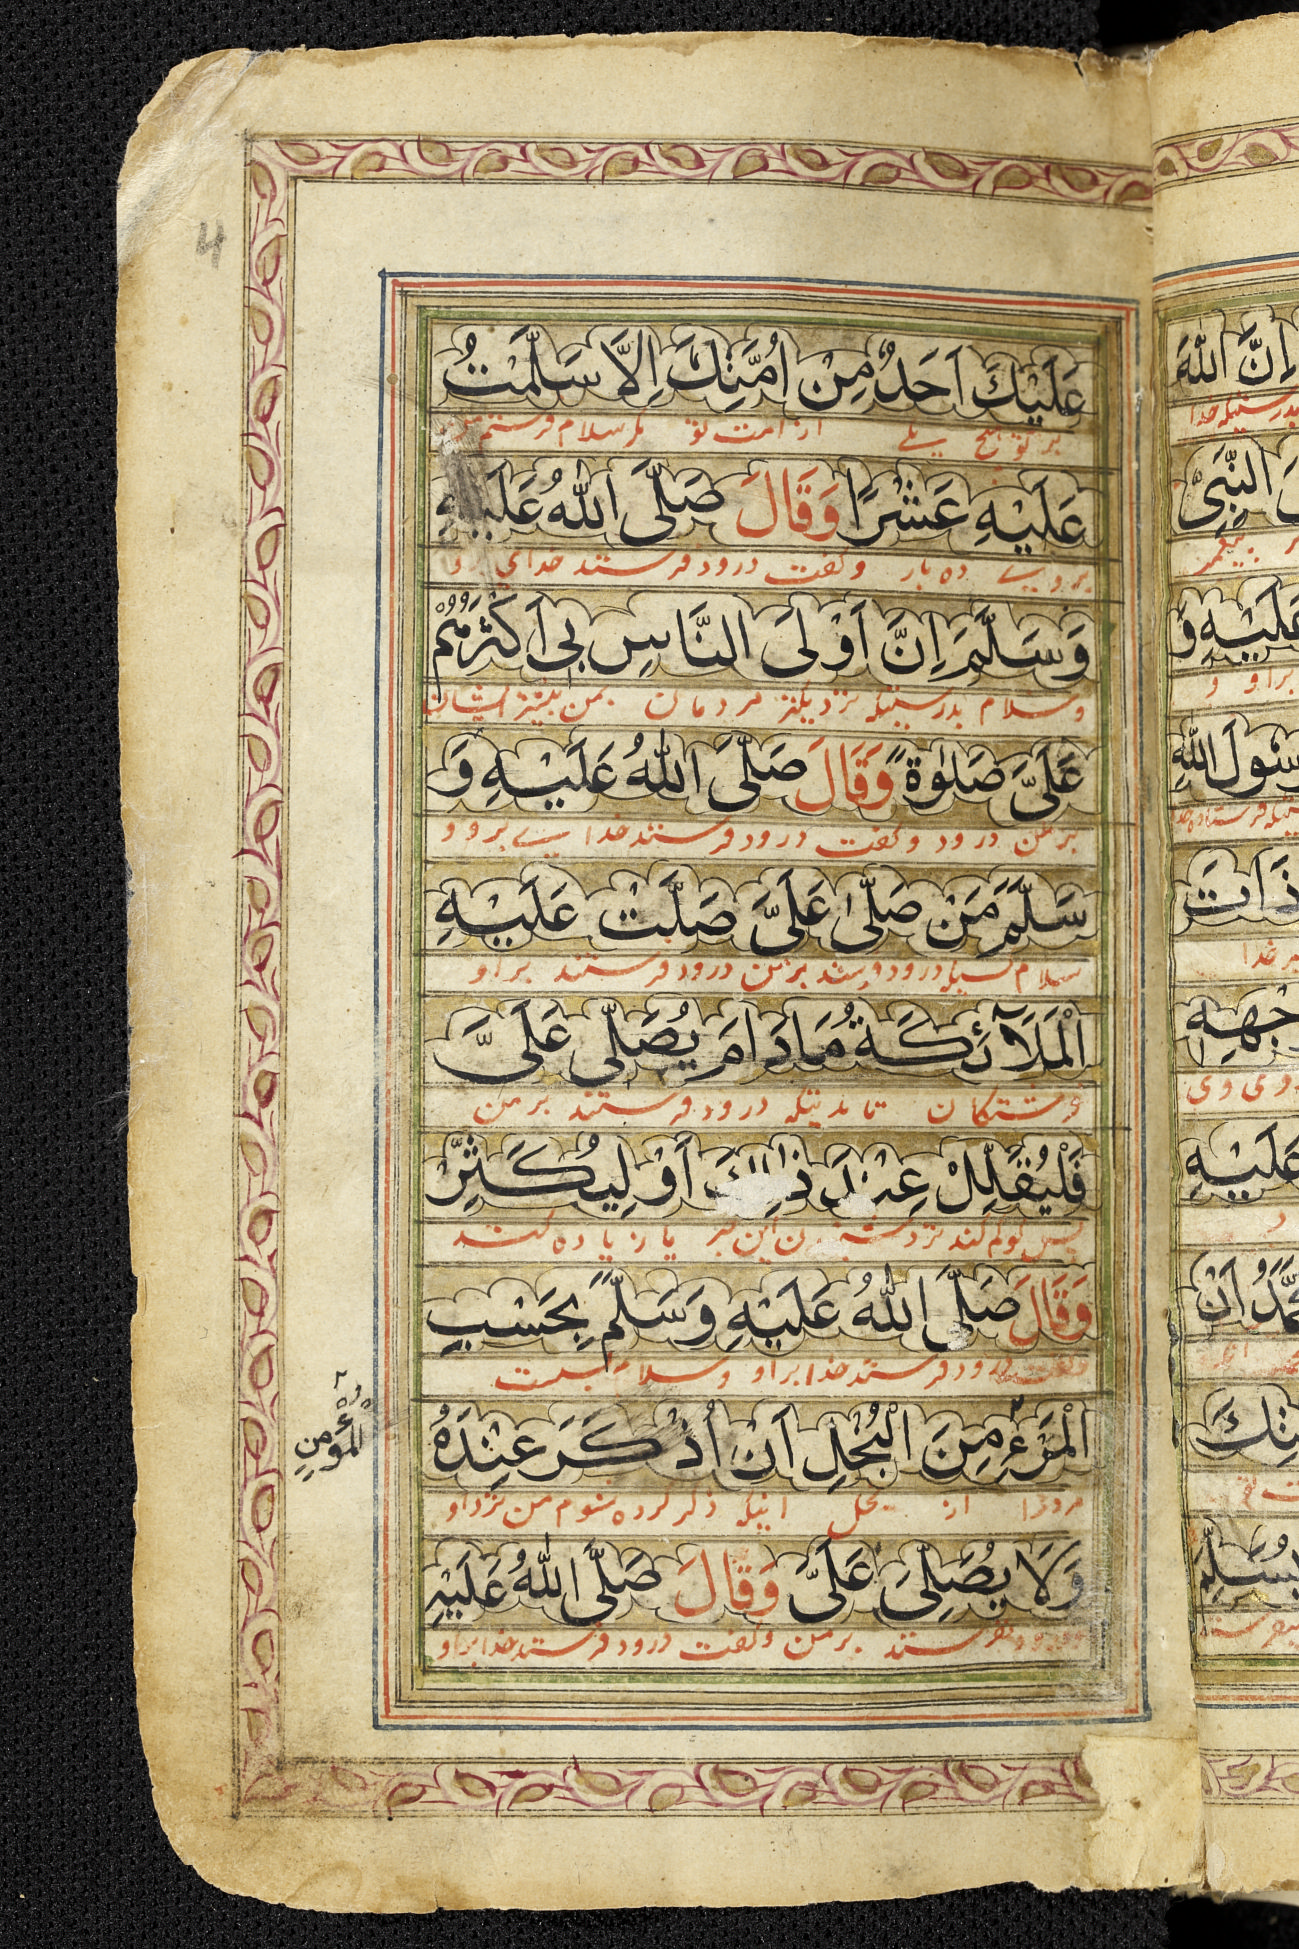 4
عَلَيْكَ اَحَدٌ مِنْ اُمَّتِكَ اِلَّا سَلَّمْتُ
بر تو هیچ یکے از امت تو مکر سلام فرستم من
عَلَيْهِ عَشْرًا وَقَالَ صَلَّى اللهُ عَلَيْهِ
بر وے ده بار و کفت درود فرستند خدای
وَسَلَّمَ اِنَّ اَوْلَى النَّاسِ بِى اَكْثَرُهُمْ
وسلام بدرستیکه نزدیکتر مردمان بمن بیشتر ایشان
عَلَىَّ صَلٰوةً وَقَالَ صَلَّى اللهُ عَلَيْهِ وَ
بر من درود و کفت درود فرستند خدا بر و و
سَلَّمَ مَنْ صَلّٰى عَلَىَّ صَلَّتْ عَلَيْهِ
سلام کسیکه درود فرستد بر من درود فرستند بر او
الْمَلَآئِكَةُ مَادَامَ يُصَلِّى عَلَىَّ
فرشتکان تا مدتیکه درود فرستند بر من
فَلْيُقَلِّلْ عِنْدَ ذٰلِكَ اَوْ لِيُكَثِّرْ
پس کو کم کند نزد این یا زیاده کند
وَقَالَ صَلَّى اللهُ عَلَيْهِ وَسَلَّمَ بِحَسْبِ
درود فرستد خدا بر او و سلام
الْمَرْءِ مِنَ الْبُخْلِ اَنْ اُذْكَرَ عِنْدَهُ
مرد را از بخل اینکه ذکر کرده شوم من نزد او
المؤمن
وَلَا يُصَلِّىَ عَلَىَّ وَقَالَ صَلَّى اللهُ عَلَيْهِ
بر من و کفت درود فرستد خدا بر او